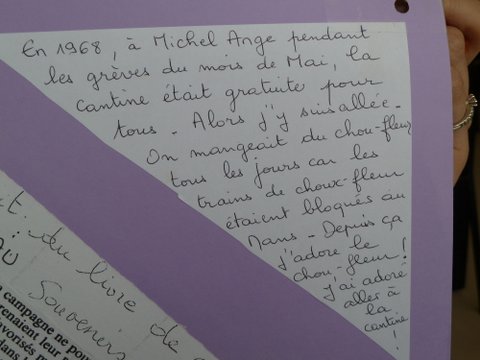 En 1968, à Michel Ange pendant
les grèves du mois de Mai, la
cantine était gratuite pour
tous - Alors j'y suis allée -
On mangeait du chou-fleur
tous les jours car les
trains de choux-fleur
étaient bloqués au
Mans - Depuis ça
j'adore le
chou-fleur !
J'ai adoré
aller à
la
cantine
!
du livre de
Souvenirs
a campagne ne pou
renaient leur
vorisés
dans